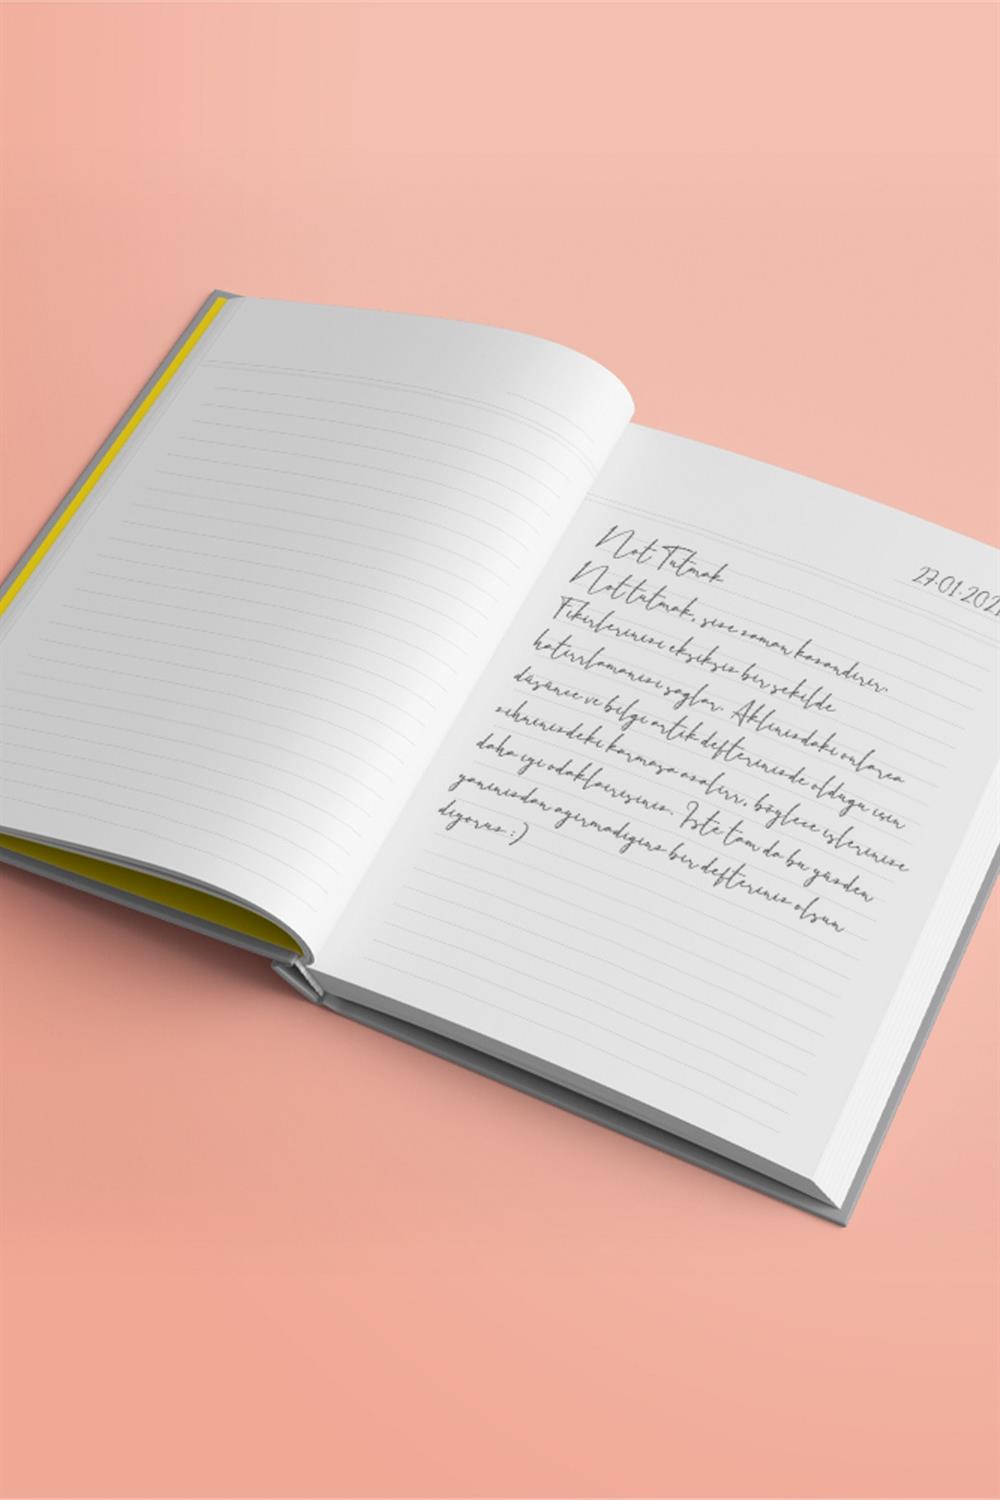 Not Tutmak
27.01.202
Not tutmak, size zaman kazandırır.
Fikirlerinizi eksiksiz bir şekilde
hatırlamanızı sağlar. Aklınızdaki onlarca
düşünce ve bilgi artık defterinizde olduğu için
zihninizdeki karmaşa azalır, böylece işlerinize
daha iyi odaklanırsınız. İşte tam da bu yüzden
yanınızdan ayırmadığınız bir defteriniz olsun
diyoruz :)